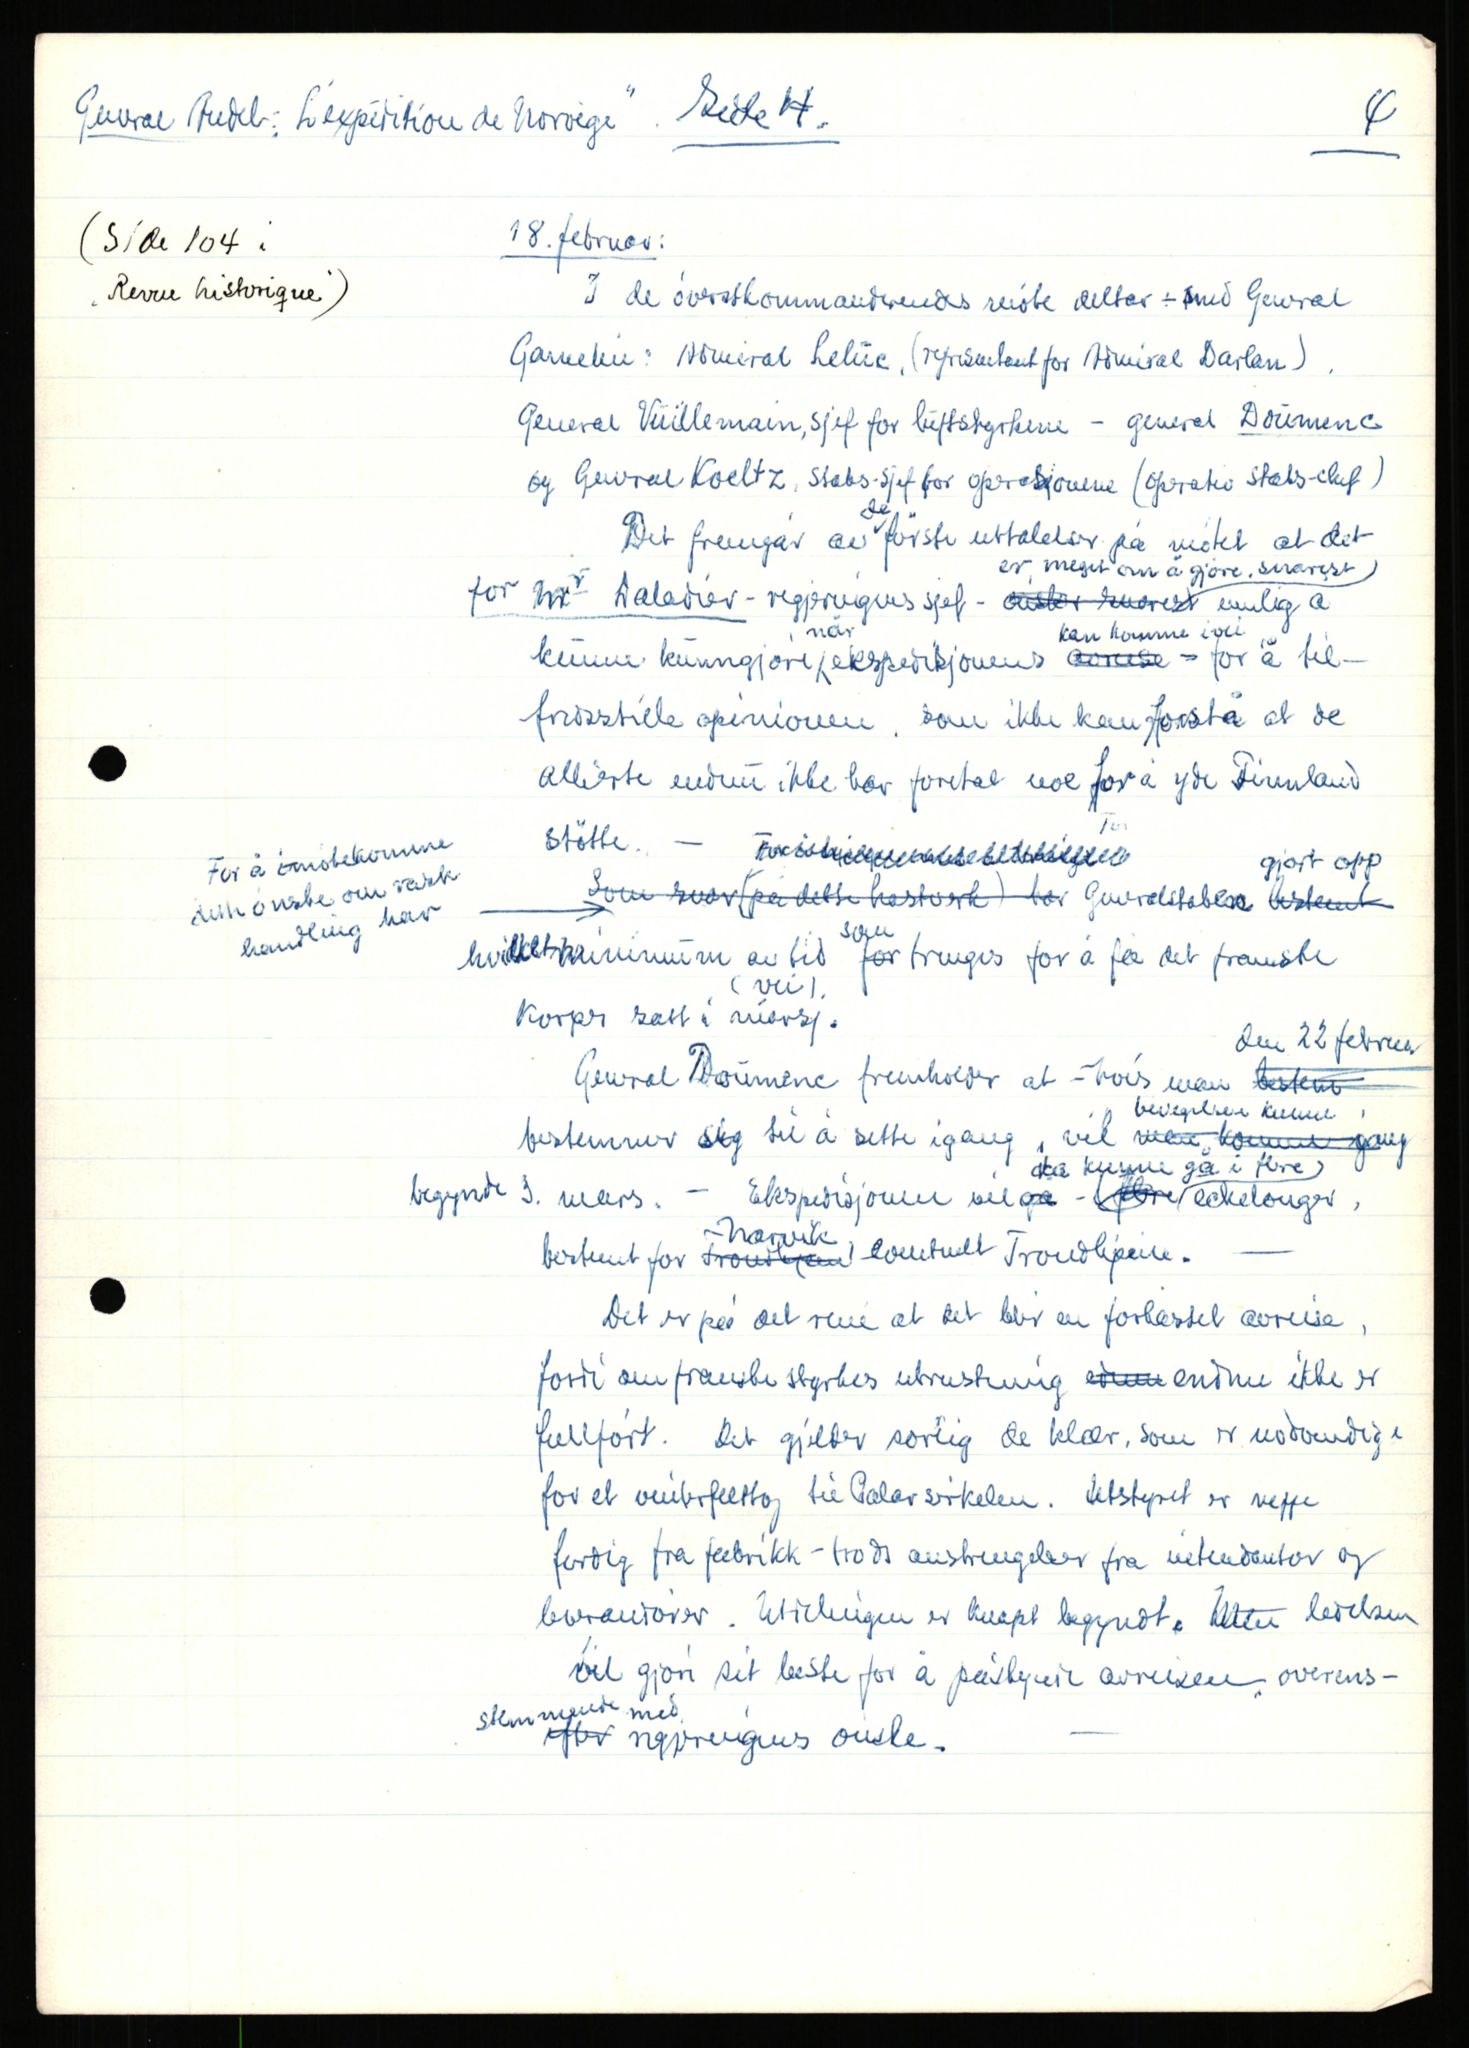 General Audet: "L'expédition de Norvège". Side 14. 4
(Side 104 i
"Revue historique")
18. februar:
I de överstkommanderendes möte deltar - med General
Gamelin: Admiral Leluc, (representant for Admiral Darlan),
General Vuillemain, sjef for luftstyrkene - general Doumenc
og General Koeltz, stabs-sjef for operasjonene (operativ stabs-chef)
de
Det fremgår av förste uttalelser på mötet at det
er meget om å gjöre, snarest
for Mr Daladier - regjeringens sjef - önsker snarest mulig å
når kan komme i vei
kunne kunngjöre ekspedisjonens avreise - for å til-
fredsstille opinionen, som ikke kan forstå at de
allierte endnu ikke har foretat noe for å yde Finnland
stötte. -
For å imötekomme
dette önske om rask
handling har
gjort opp
Som svar (på dette hastverk) har Generalstaben bestemt
som
hvilket minimum av tid for trenges for å få det franske
(vei).
Korps satt i marsj.
den 22 februar
General Doumenc fremholder at - hvis man bestem
bevegelsen kunne
bestemmer sig til å sette igang, vil man komme gang
da kunne gå i flere
begynde 3. mars. - Ekspedisjonen vil gå - flere echelonger,
- Narvik
bestemt for Trondhjem eventuelt Trondhjem. -
Det er på det rene at det blir en forhastet avreise,
fordi om franske styrkes utrustning endnu ikke er
fullfört. Det gjelder særlig de klær, som er nödvendige
for et vinterfelttog til Polarsirkelen. Utstyret er neppe
ferdig fra fabrikk - trods anstrengelser fra intendantur og
leverandörer. Utdelingen er knapt begyndt. Men ledelsen
vil gjöre sit beste for å påskynde avreisen, overens-
stemmende med
efter regjeringens önske. -